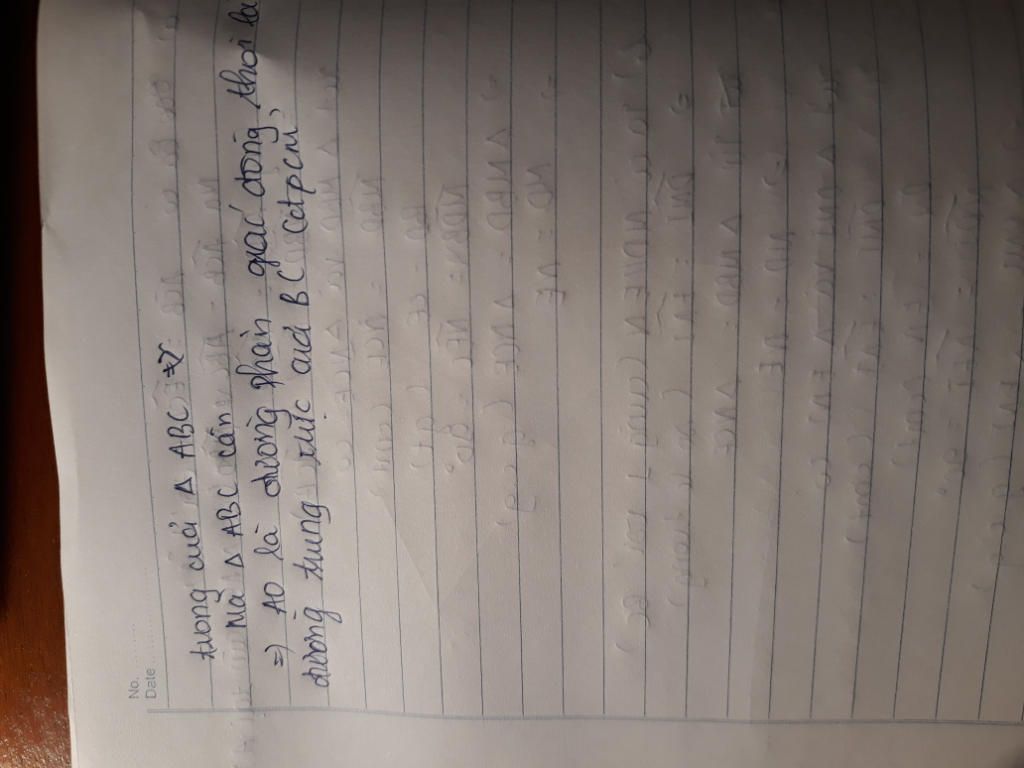 No.
Date
tương của △ ABC
Mà △ ABC cân
=) AO là đường phân giác đồng thời là
đường trung trực của BC (đtpcm)